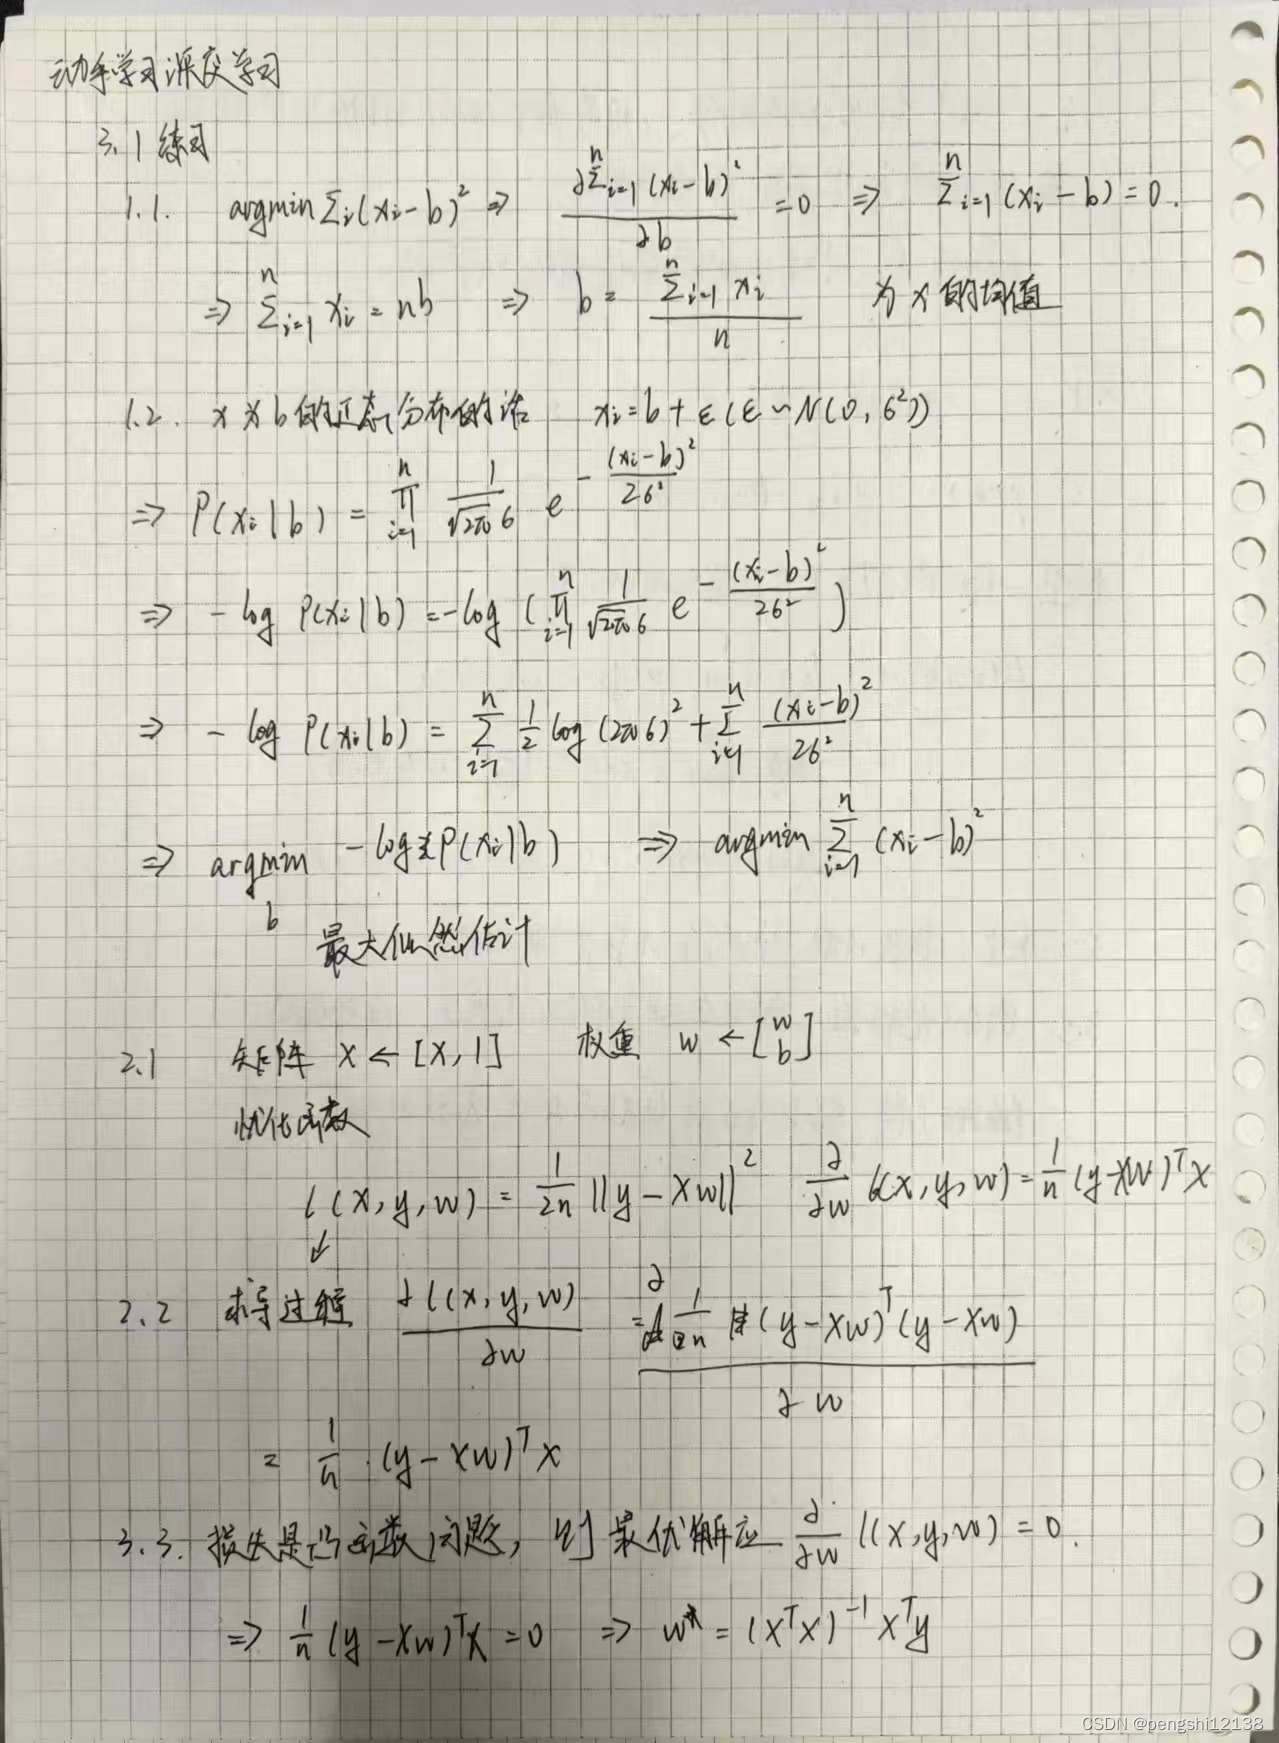 动手学习深度学习
3.1 练习
1.1. argmin Σi(xi-b)² ⇒ ∂Σⁿi=1(xi-b)² / ∂b = 0 ⇒ Σⁿi=1(xi-b)=0.
⇒ Σⁿi=1 xi = nb ⇒ b = Σⁿi=1 xi / n 为x的均值
1.2. x为b的正态分布的话 xi=b+ε(ε~N(0,6²))
⇒ P(xi|b) = ∏ⁿi=1 1/√2π6 e^-(xi-b)²/26²
⇒ -log P(xi|b) = -log (∏ⁿi=1 1/√2π6 e^-(xi-b)²/26²)
⇒ -log P(xi|b) = Σⁿi=1 1/2 log(2π6)² + Σⁿi=1 (xi-b)²/26²
⇒ argmin b -log P(xi|b) ⇒ argmin Σⁿi=1 (xi-b)²
最大似然估计
2.1 矩阵 X ← [X,1] 权重 w ← [w b]
优化函数
l(X,y,w) = 1/2n ||y-Xw||² ∂/∂w l(X,y,w) = 1/n (y-Xw)ᵀX
↙
2.2 求导过程 ∂l(X,y,w) / ∂w = ∂ 1/2n (y-Xw)ᵀ(y-Xw) / ∂w
= 1/n · (y-Xw)ᵀX
3.3. 损失是凸函数问题, 则最优解应 ∂/∂w l(X,y,w) = 0.
⇒ 1/n (y-Xw)ᵀX = 0 ⇒ w* = (XᵀX)⁻¹Xᵀy
CSDN @pengshi12138